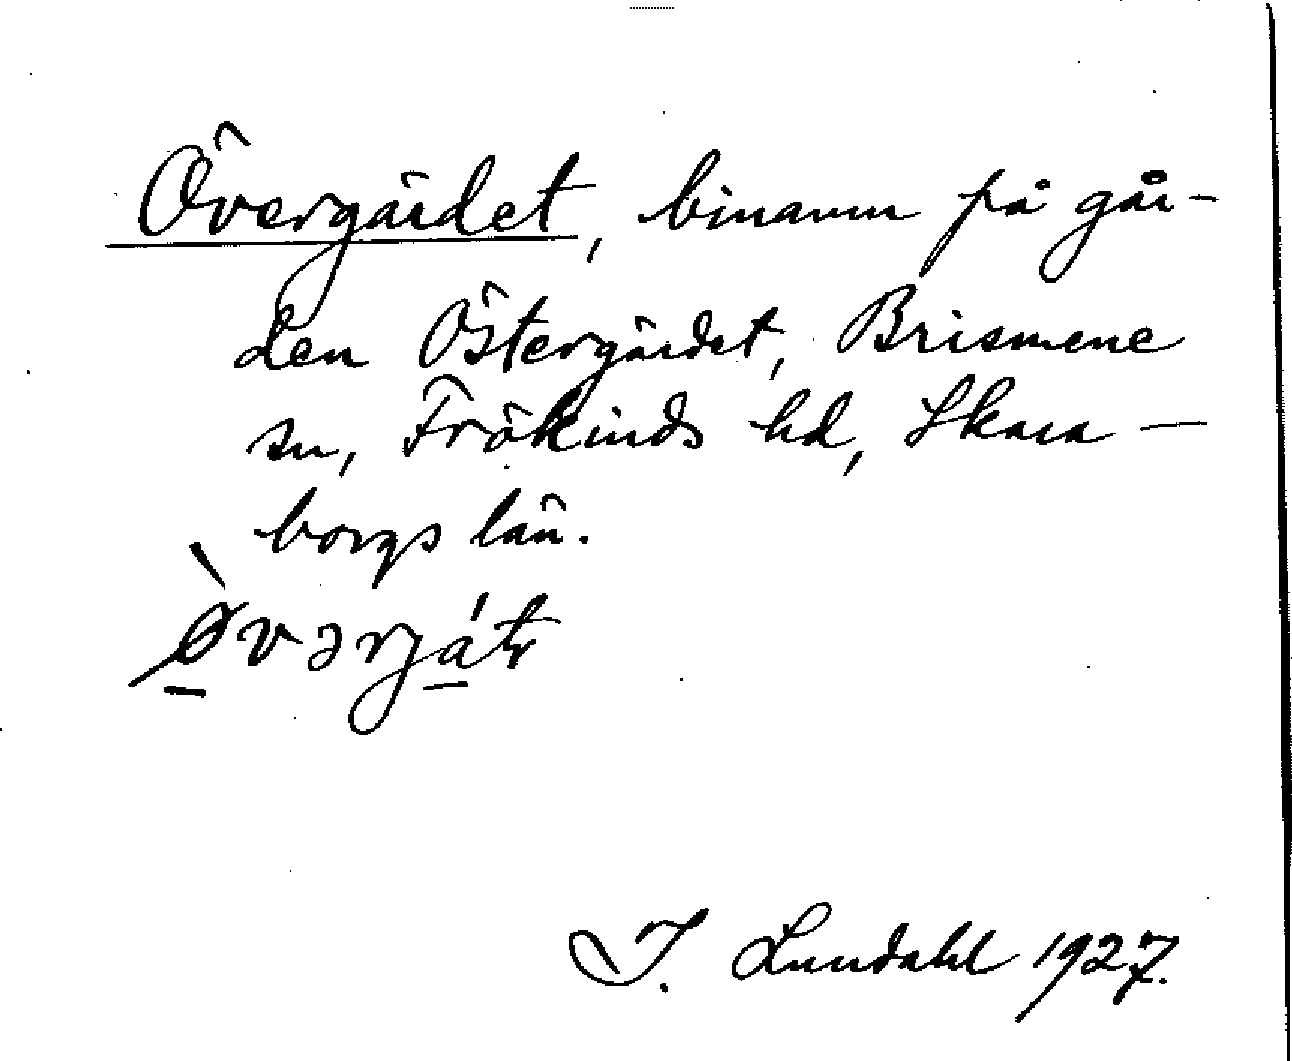 Övergärdet, binamn på går-
den Östergärdet, Brismene
sn, Frökinds hd, Skara-
borgs län.
I. Lundahl 1927.